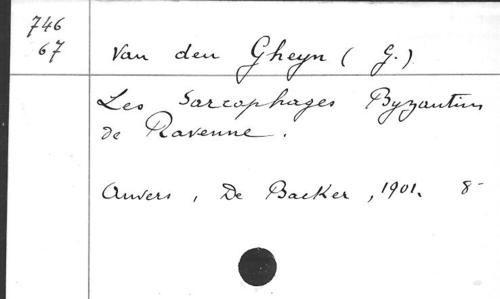 746
67
Van den Gheyn ( G. )
Les Sarcophages Byzantins
de Ravenne.
Anvers, De Backer, 1901. 8-